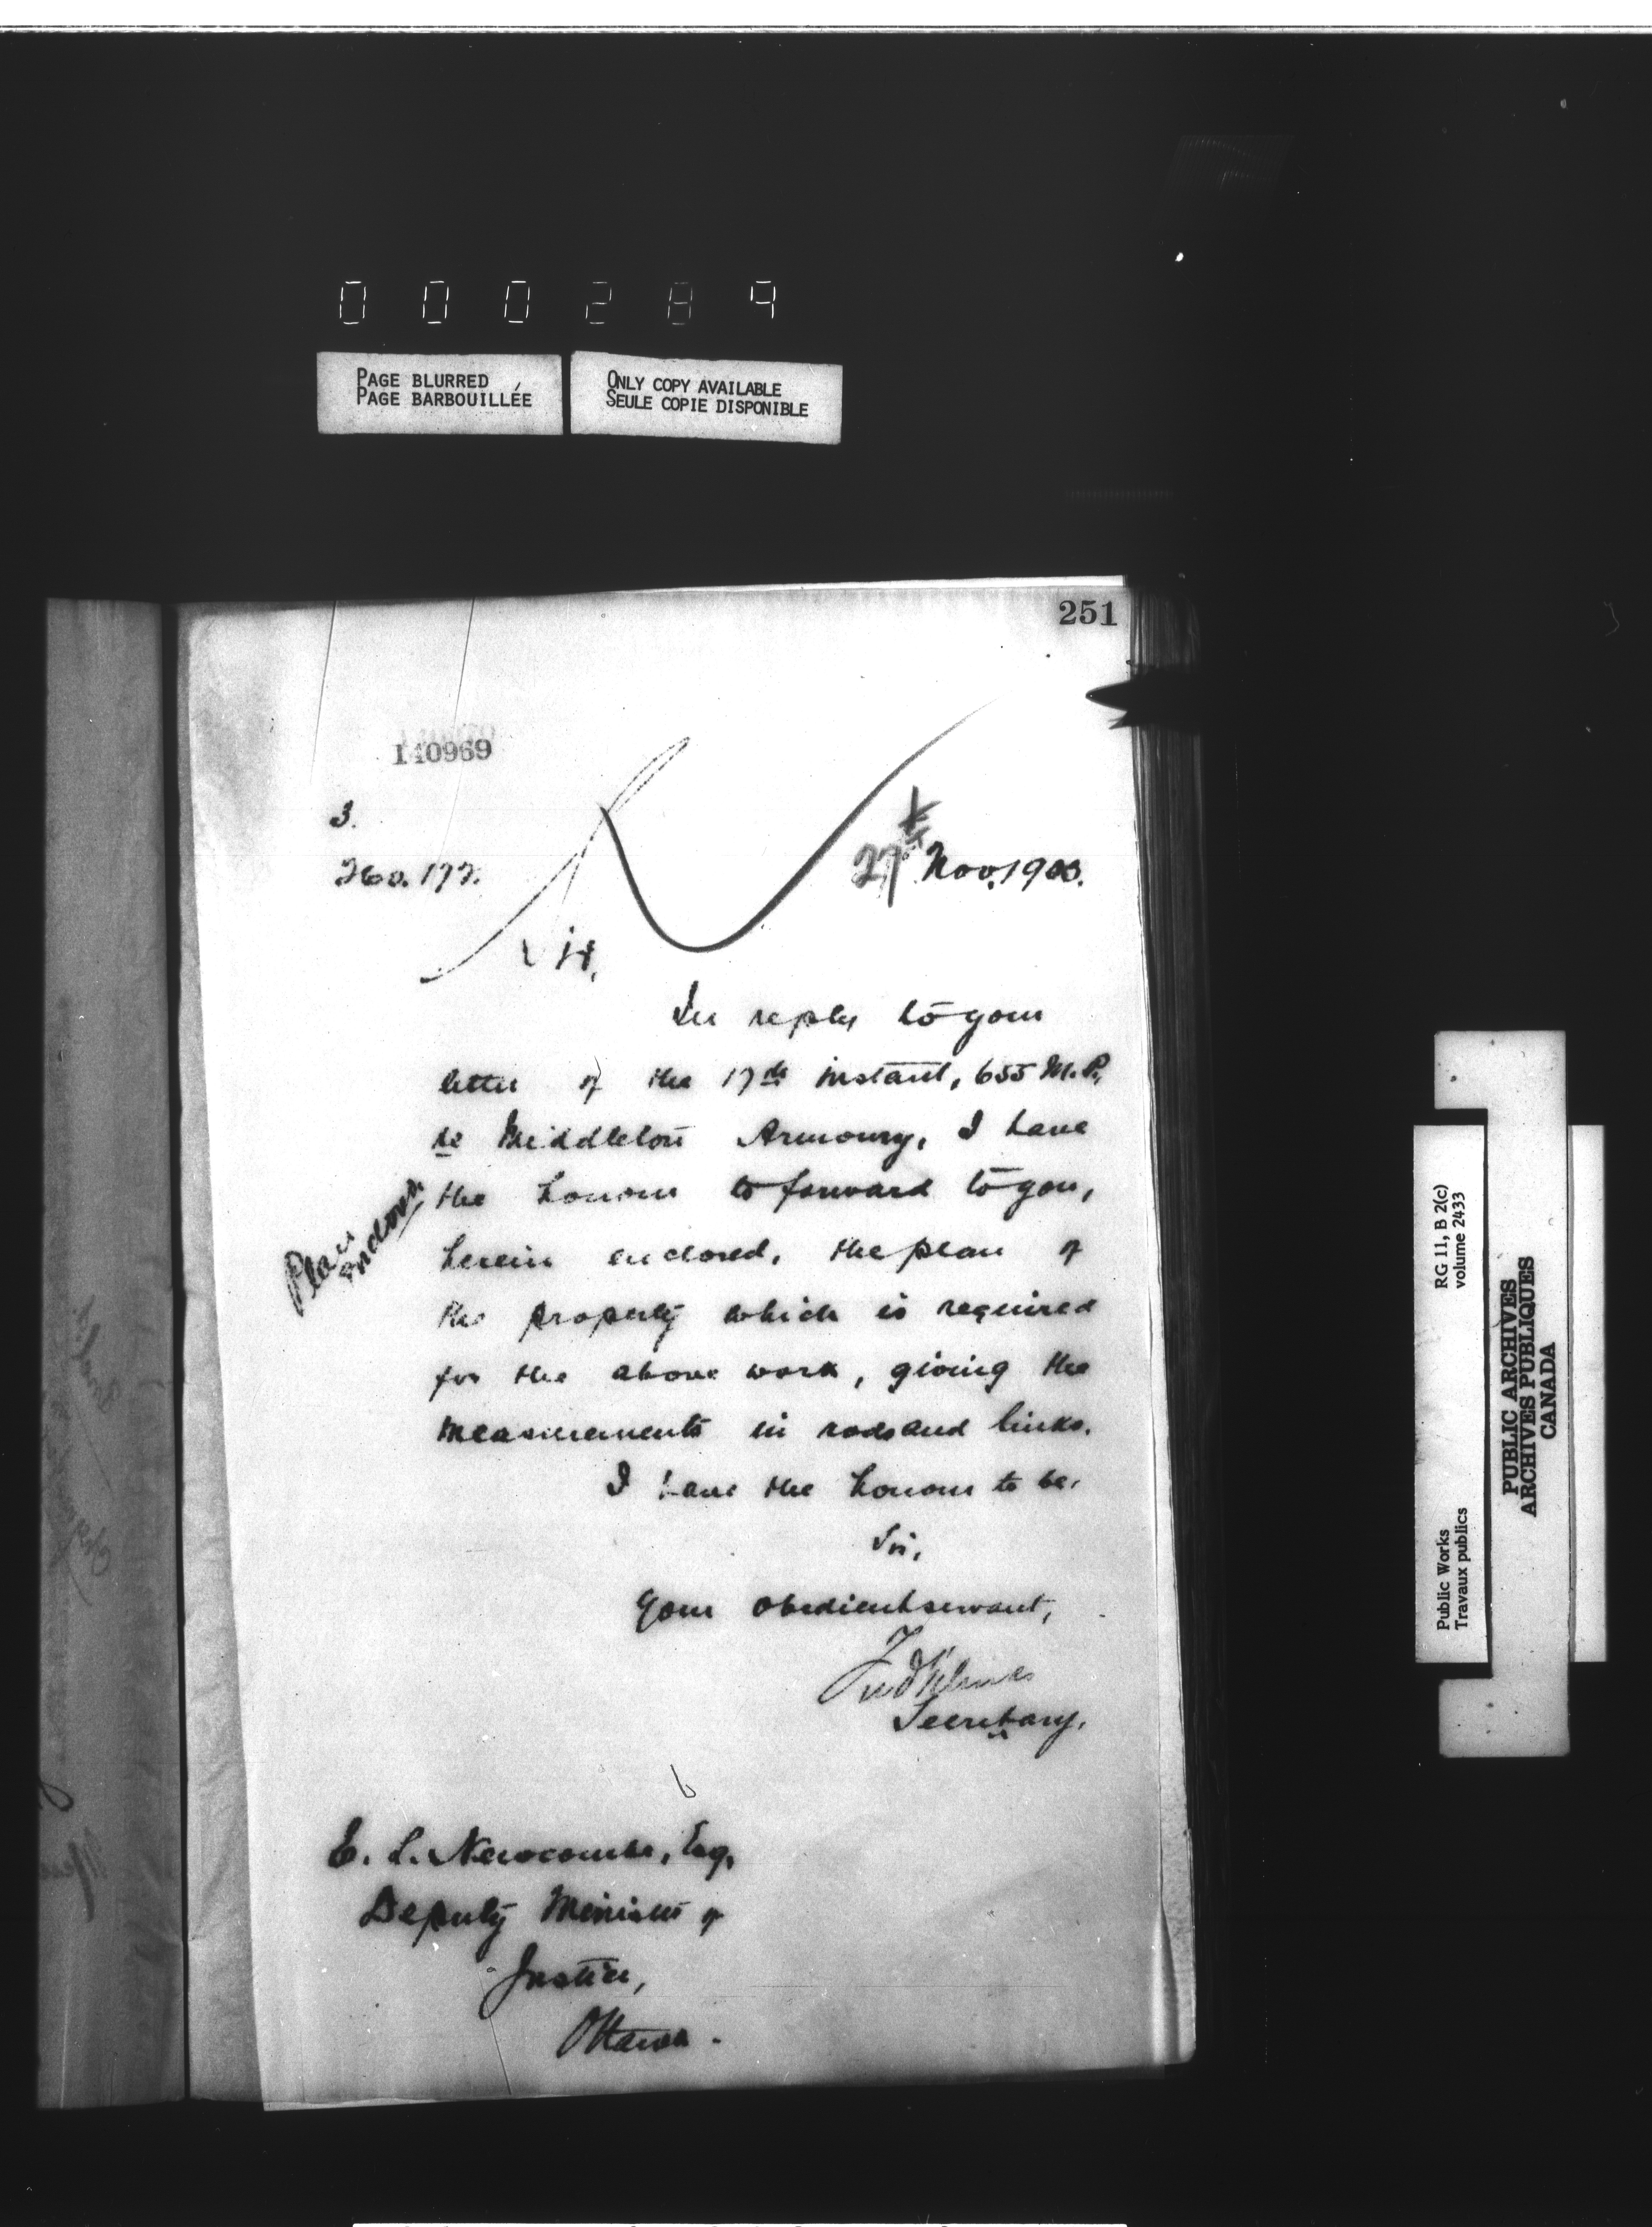 000289
PAGE BLURRED
PAGE BARBOUILLÉE
ONLY COPY AVAILABLE
SEULE COPIE DISPONIBLE
251
140969
3.
260.177.
27th Nov. 1903.
Sir,
In reply to your
letter of the 17th instant, 655 M.P.,
re Middleton Armoury, I have
the honour to forward to you,
herein enclosed, the plan of
the property which is required
for the above work, giving the
measurements in rods and links.
I have the honour to be,
Sir,
Your obedient servant,
Secretary.
Plan
E. L. Newcombe, Esq.
Deputy Minister of
Justice,
Ottawa.
RG 11, B 2(c)
volume 2433
Public Works
Travaux publics
PUBLIC ARCHIVES
ARCHIVES PUBLIQUES
CANADA